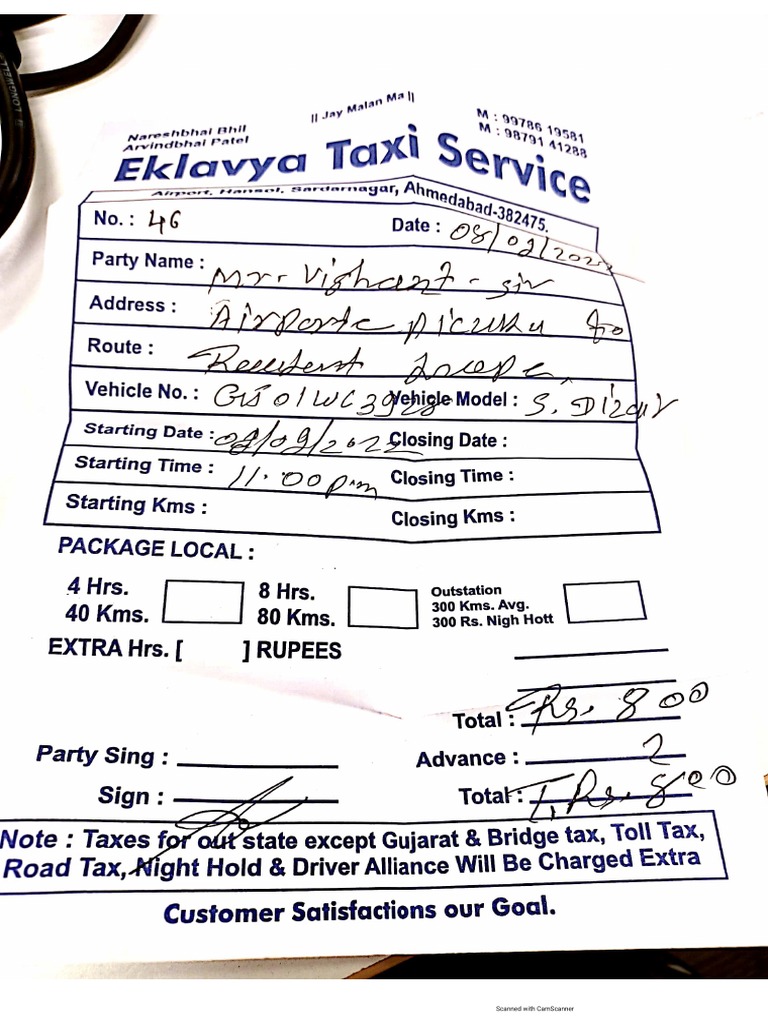 LONGWELL
|| Jay Malan Ma ||
Nareshbhai Bhil
Arvindbhai Patel
M : 99786 19581
M : 98791 41288
Eklavya Taxi Service
Airport, Hansol, Sardarnagar, Ahmedabad-382475.
No. : 46 Date : 08/02/202
Party Name : Mr. Vishant - sir
Address : Airporte to
Route :
Vehicle No. : GJ 01WC 3928 Vehicle Model : S. Dizair
Starting Date : 08/02/2022 Closing Date :
Starting Time : 11.00pm Closing Time :
Starting Kms : Closing Kms :
PACKAGE LOCAL :
4 Hrs. 40 Kms. 8 Hrs. 80 Kms. Outstation 300 Kms. Avg. 300 Rs. Nigh Hott
EXTRA Hrs. [ ] RUPEES
Total : Rs. 800
Party Sing : Advance :
Sign : Total : T, Rs. 800
Note : Taxes for out state except Gujarat & Bridge tax, Toll Tax,
Road Tax, Night Hold & Driver Alliance Will Be Charged Extra
Customer Satisfactions our Goal.
Scanned with CamScanner